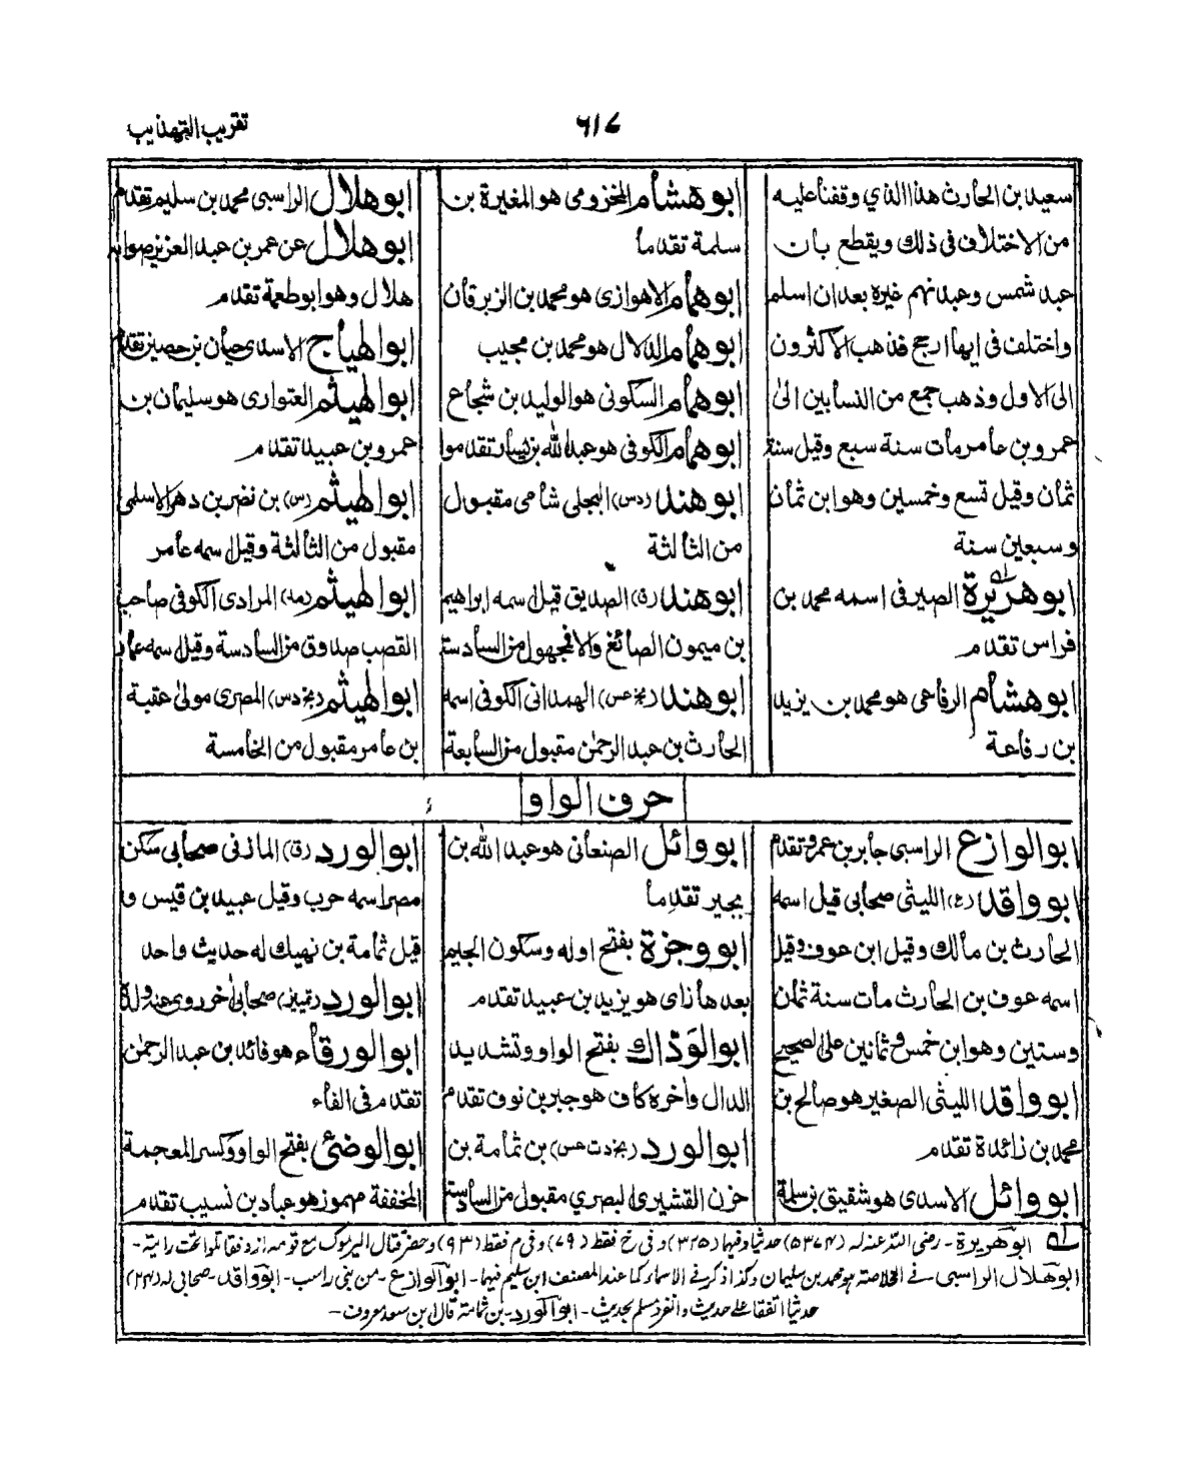 تقريب التهذيب
٦١٧
سعيد بن الحارث هذا الذي وقفنا عليه
من الاختلاف في ذلك ويقطع بان
عبد شمس وعبد نهم غيرة بعد ان اسلم
واختلف في ايها ارجح فذهب الاكثرون
الى الاول وذهب جمع من النسابين الى
عمرو بن عامر مات سنة سبع وقيل سنة
ثمان وقيل تسع وخمسين وهو ابن ثمان
وسبعين سنة
ابو هريرة الصيرفي اسمه محمد بن
فراس تقدم
ابو هشام الرفاعي هو محمد بن يزيد
بن رفاعة
ابو هشام المخزومي هو المغيرة بن
سلمة تقدما
ابو همام الاهوازي هو محمد بن الزبرقان
ابو همام الدلال هو محمد بن مجيب
ابو همام السكوني هو الوليد بن شجاع
ابو همام الكوفي هو عبد الله بن يسار تقدموا
ابو هند (دس) البجلي شامي مقبول
من الثالثة
ابو هند (ق) الصديق قيل اسمه ابراهيم
بن ميمون الصائغ والا فمجهول من السادسة
ابو هند (بخ عس) الهمداني الكوفي اسمه
الحارث بن عبد الرحمن مقبول من السابعة
ابو هلال الراسبي محمد بن سليم تقدم
ابو هلال عن عمر بن عبد العزيز صوابه
هلال وهو ابو طعمة تقدم
ابو الهياج الاسدي حيان بن حصين تقدم
ابو الهيثم العتواري هو سليمان بن
عمرو بن عبيد تقدم
ابو الهيثم (س) بن نضر بن دهر الاسلمي
مقبول من الثالثة وقيل اسمه عامر
ابو الهيثم (مد) المرادي الكوفي صاحب
القصب صدوق من السادسة وقيل اسمه عمار
ابو الهيثم (بخ دس) المصري مولى عقبة
بن عامر مقبول من الخامسة
حرف الواو
ابو الوازع الراسبي جابر بن عمرو تقدم
ابو واقد (ع) الليثي صحابي قيل اسمه
الحارث بن مالك وقيل ابن عوف وقيل
اسمه عوف بن الحارث مات سنة ثمان
وستين وهو ابن خمس وثمانين على الصحيح
ابو واقد الليثي الصغير هو صالح بن
محمد بن زائدة تقدم
ابو وائل الاسدي هو شقيق بن سلمة
ابو وائل الصنعاني هو عبد الله بن
بجير تقدما
ابو وجزة بفتح اوله وسكون الجيم
بعدها زاي هو يزيد بن عبيد تقدم
ابو الودّاك بفتح الواو وتشديد
الدال واخره كاف هو جبر بن نوف تقدم
ابو الورد (بخ دت عس) بن ثمامة بن
حزن القشيري البصري مقبول من السادسة
ابو الورد (ق) المازني صحابي سكن
مصر اسمه حرب وقيل عبيد بن قيس و
قيل ثمامة بن نهيك له حديث واحد
ابو الورد (تمييز) صحابي اخر روى عنه ولده
ابو الورقاء هو فائد بن عبد الرحمن
تقدم في الفاء
ابو الوضئ بفتح الواو وكسر المعجمة
المخففة مهموز هو عباد بن نسيب تقدم
له ابو هريرة - رضي الله عنه له (٥٣٧٤) حديثا وفيها (٣٢٥) و في خ فقط (٧٩) و في م فقط (٩٣) وحضر قتال اليرموك مع قومه ازد فقاتلوا تحت رايته -
ابو هلال الراسبي في الخلاصة هو محمد بن سليمان وكذا ذكر في الاسماء كما عند المصنف ابن سليم فيها - ابو الوازع - من بني راسب - ابو واقد - صحابي له (٢٤)
حديثا اتفقا على حديث وانفرد مسلم بحديث - ابو الورد - بن ثمامة قال ابن سعد معروف -